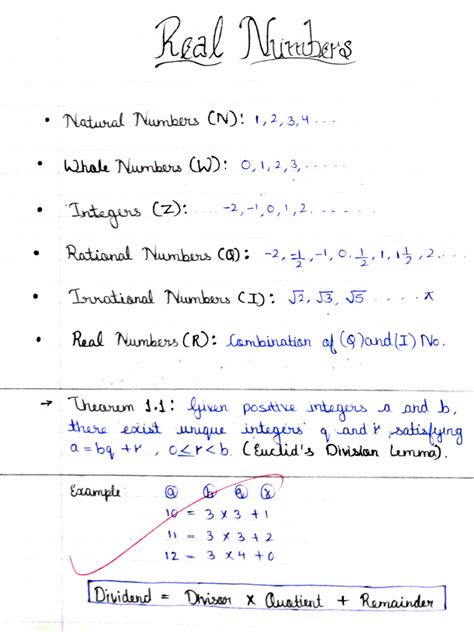 Real Numbers
• Natural Numbers (N): 1, 2, 3, 4 ....
• Whole Numbers (W): 0, 1, 2, 3, ......
• Integers (Z): ..... -2, -1, 0, 1, 2. ......
• Rational Numbers (Q): -2, -1/2, -1, 0. 1/2, 1, 1 1/2, 2....
• Irrational Numbers (I): √2, √3, √5 ..... π
• Real Numbers (R): Combination of (Q) and (I) No.
→ Thearem 1.1: Given positive integers a and b,
there exist unique integers q and r, satisfying
a = bq + r , 0 ≤ r < b. (Euclid's Division Lemma).
Example: a b q r
10 = 3 × 3 + 1
11 = 3 × 3 + 2
12 = 3 × 4 + 0
Dividend = Divisor × Quotient + Remainder